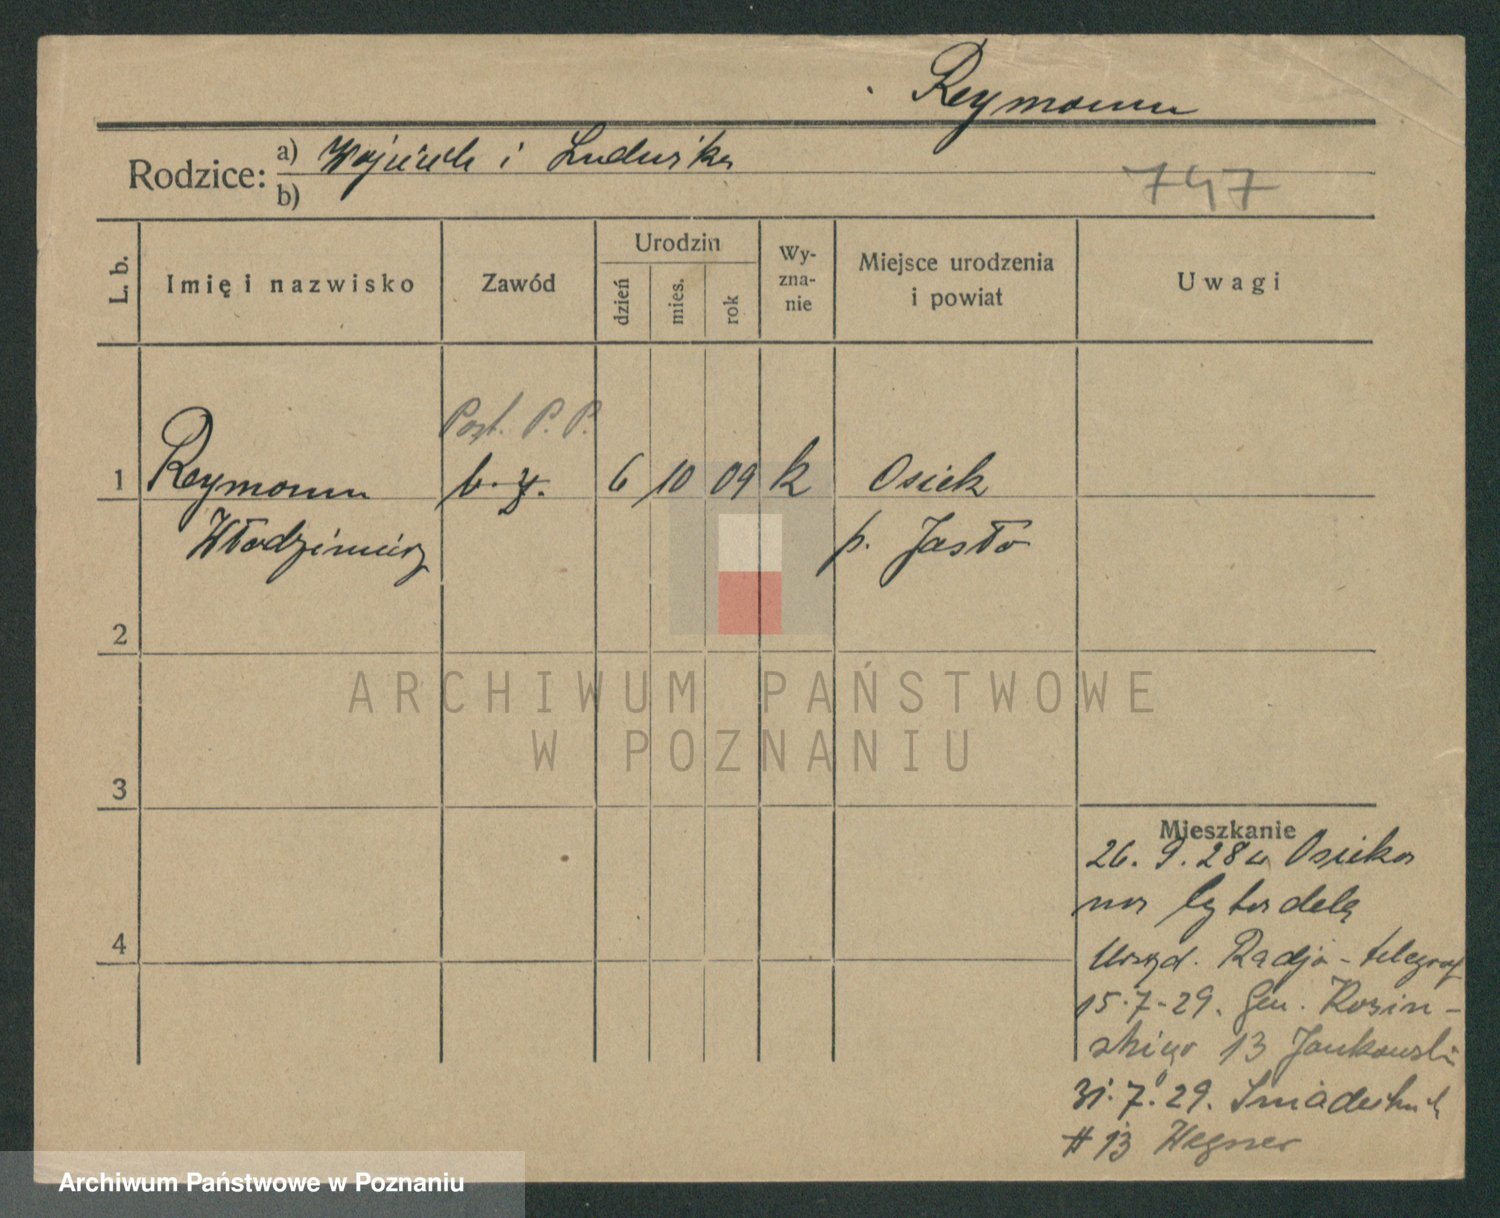 Reymann
Rodzice: a) Wojciech i Ludwika
b)
747
L. b.
Imię i nazwisko
Zawód
Urodzin
dzień
mies.
rok
Wy-
zna-
nie
Miejsce urodzenia
i powiat
Uwagi
Post. P. P.
1 Reymann b. z. 6 10 09 k Osiek
Włodzimierz p. Jasło
2
ARCHIWUM PAŃSTWOWE
W POZNANIU
3
Mieszkanie
26. 9. 28 u Osieka
na Cytadelę
Urząd. Radjo-telegraf
15.7.29. Gen. Kosiń-
skiego 13 Jankowski
31.7.29. Śniadeckich
# 13 Wegner
4
Archiwum Państwowe w Poznaniu